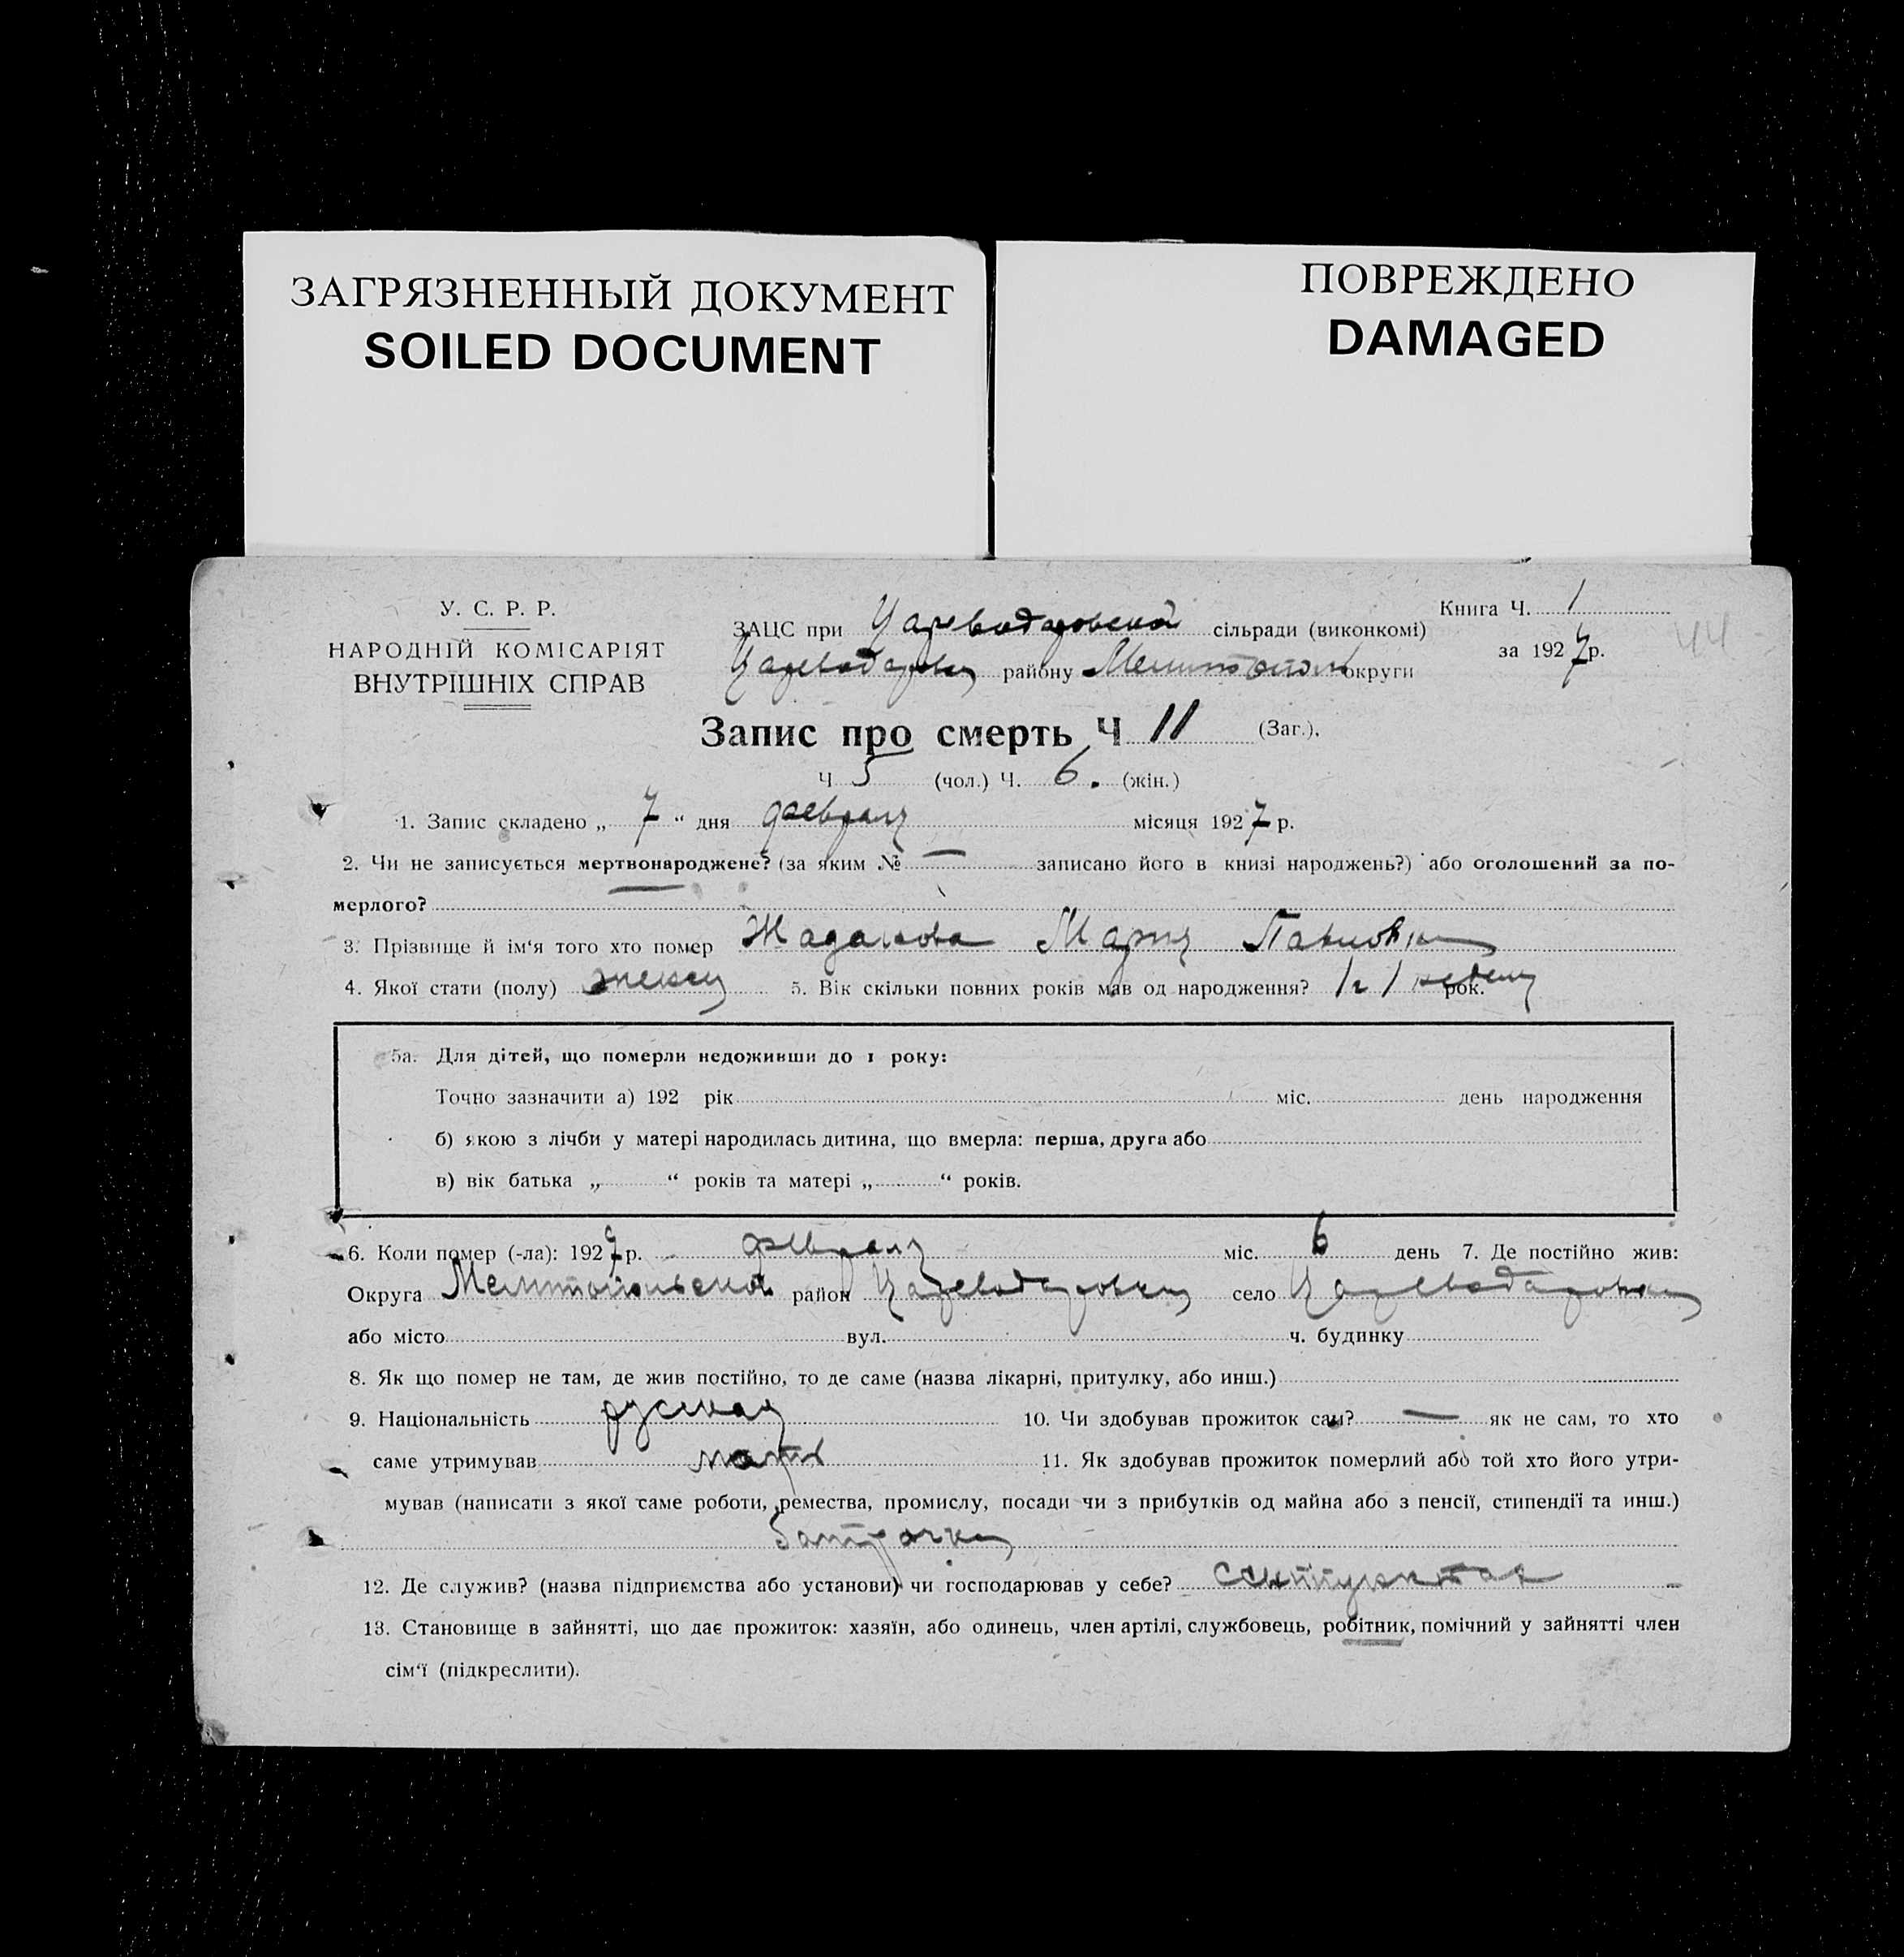 ЗАГРЯЗНЕННЫЙ ДОКУМЕНТ
SOILED DOCUMENT
ПОВРЕЖДЕНО
DAMAGED
У. С. Р. Р.
НАРОДНІЙ КОМІСАРІЯТ
ВНУТРІШНІХ СПРАВ
ЗАЦС при Цареводаровской сільради (виконкомі)
району Мелитопол округи
Книга Ч. 1
за 1927 р.
44
Запис про смерть Ч 11 (Заг.).
Ч 5 (чол.) Ч. 6. (жін.)
1. Запис складено „ 7 “ дня февраля місяця 1927 р.
2. Чи не записується мертвонароджене? (за яким № — записано його в книзі народжень?) або оголошений за по-
мерлого?
3. Прізвище й ім‘я того хто помер Жаданова Мария Павловна
4. Якої стати (полу) 5. Вік скільки повних років мав од народження? 1 г 1 неделя рок.
5а. Для дітей, що померли недоживши до 1 року:
Точно зазначити а) 192 рік міс. день народження
б) якою з лічби у матері народилась дитина, що вмерла: перша, друга або
в) вік батька „ “ років та матері „ “ років.
6. Коли помер (-ла): 1927 р. февраля міс. 6 день 7. Де постійно жив:
Округа Мелитопольской район Цареводаровка село Цареводаровка
або місто вул. ч. будинку
8. Як що помер не там, де жив постійно, то де саме (назва лікарні, притулку, або инш.)
9. Національність русская 10. Чи здобував прожиток сам? — як не сам, то хто
саме утримував мать 11. Як здобував прожиток померлий або той хто його утри-
мував (написати з якої саме роботи, ремества, промислу, посади чи з прибутків од майна або з пенсії, стипендії та инш.)
батрачка
12. Де служив? (назва підприємства або установи) чи господарював у себе?
13. Становище в зайнятті, що дає прожиток: хазяїн, або одинець, член артілі, службовець, робітник, помічний у зайнятті член
сім‘ї (підкреслити).